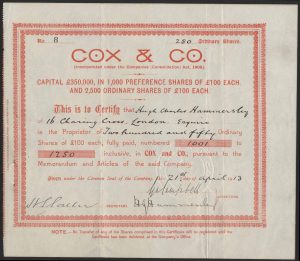 No. 8 250 Ordinary Shares.
COX & CO.
(Incorporated under the Companies (Consolidation) Act, 1908.)
CAPITAL £350,000, IN 1,000 PREFERENCE SHARES OF £100 EACH,
AND 2,500 ORDINARY SHARES OF £100 EACH.
This is to Certify that Hugh Charles Hammersley
of 16 Charing Cross, London, Esquire
is the Proprietor of Two hundred and fifty Ordinary
Shares of £100 each, fully paid, numbered 1001 to
1250 inclusive, in COX AND CO., pursuant to the
Memorandum and Articles of the said Company.
Given under the Common Seal of the Company this 21st of April 1913
SECRETARY.
NOTE.—No Transfer of any of the Shares comprised in this Certificate will be registered until the
Certificate has been delivered at the Company's Office.